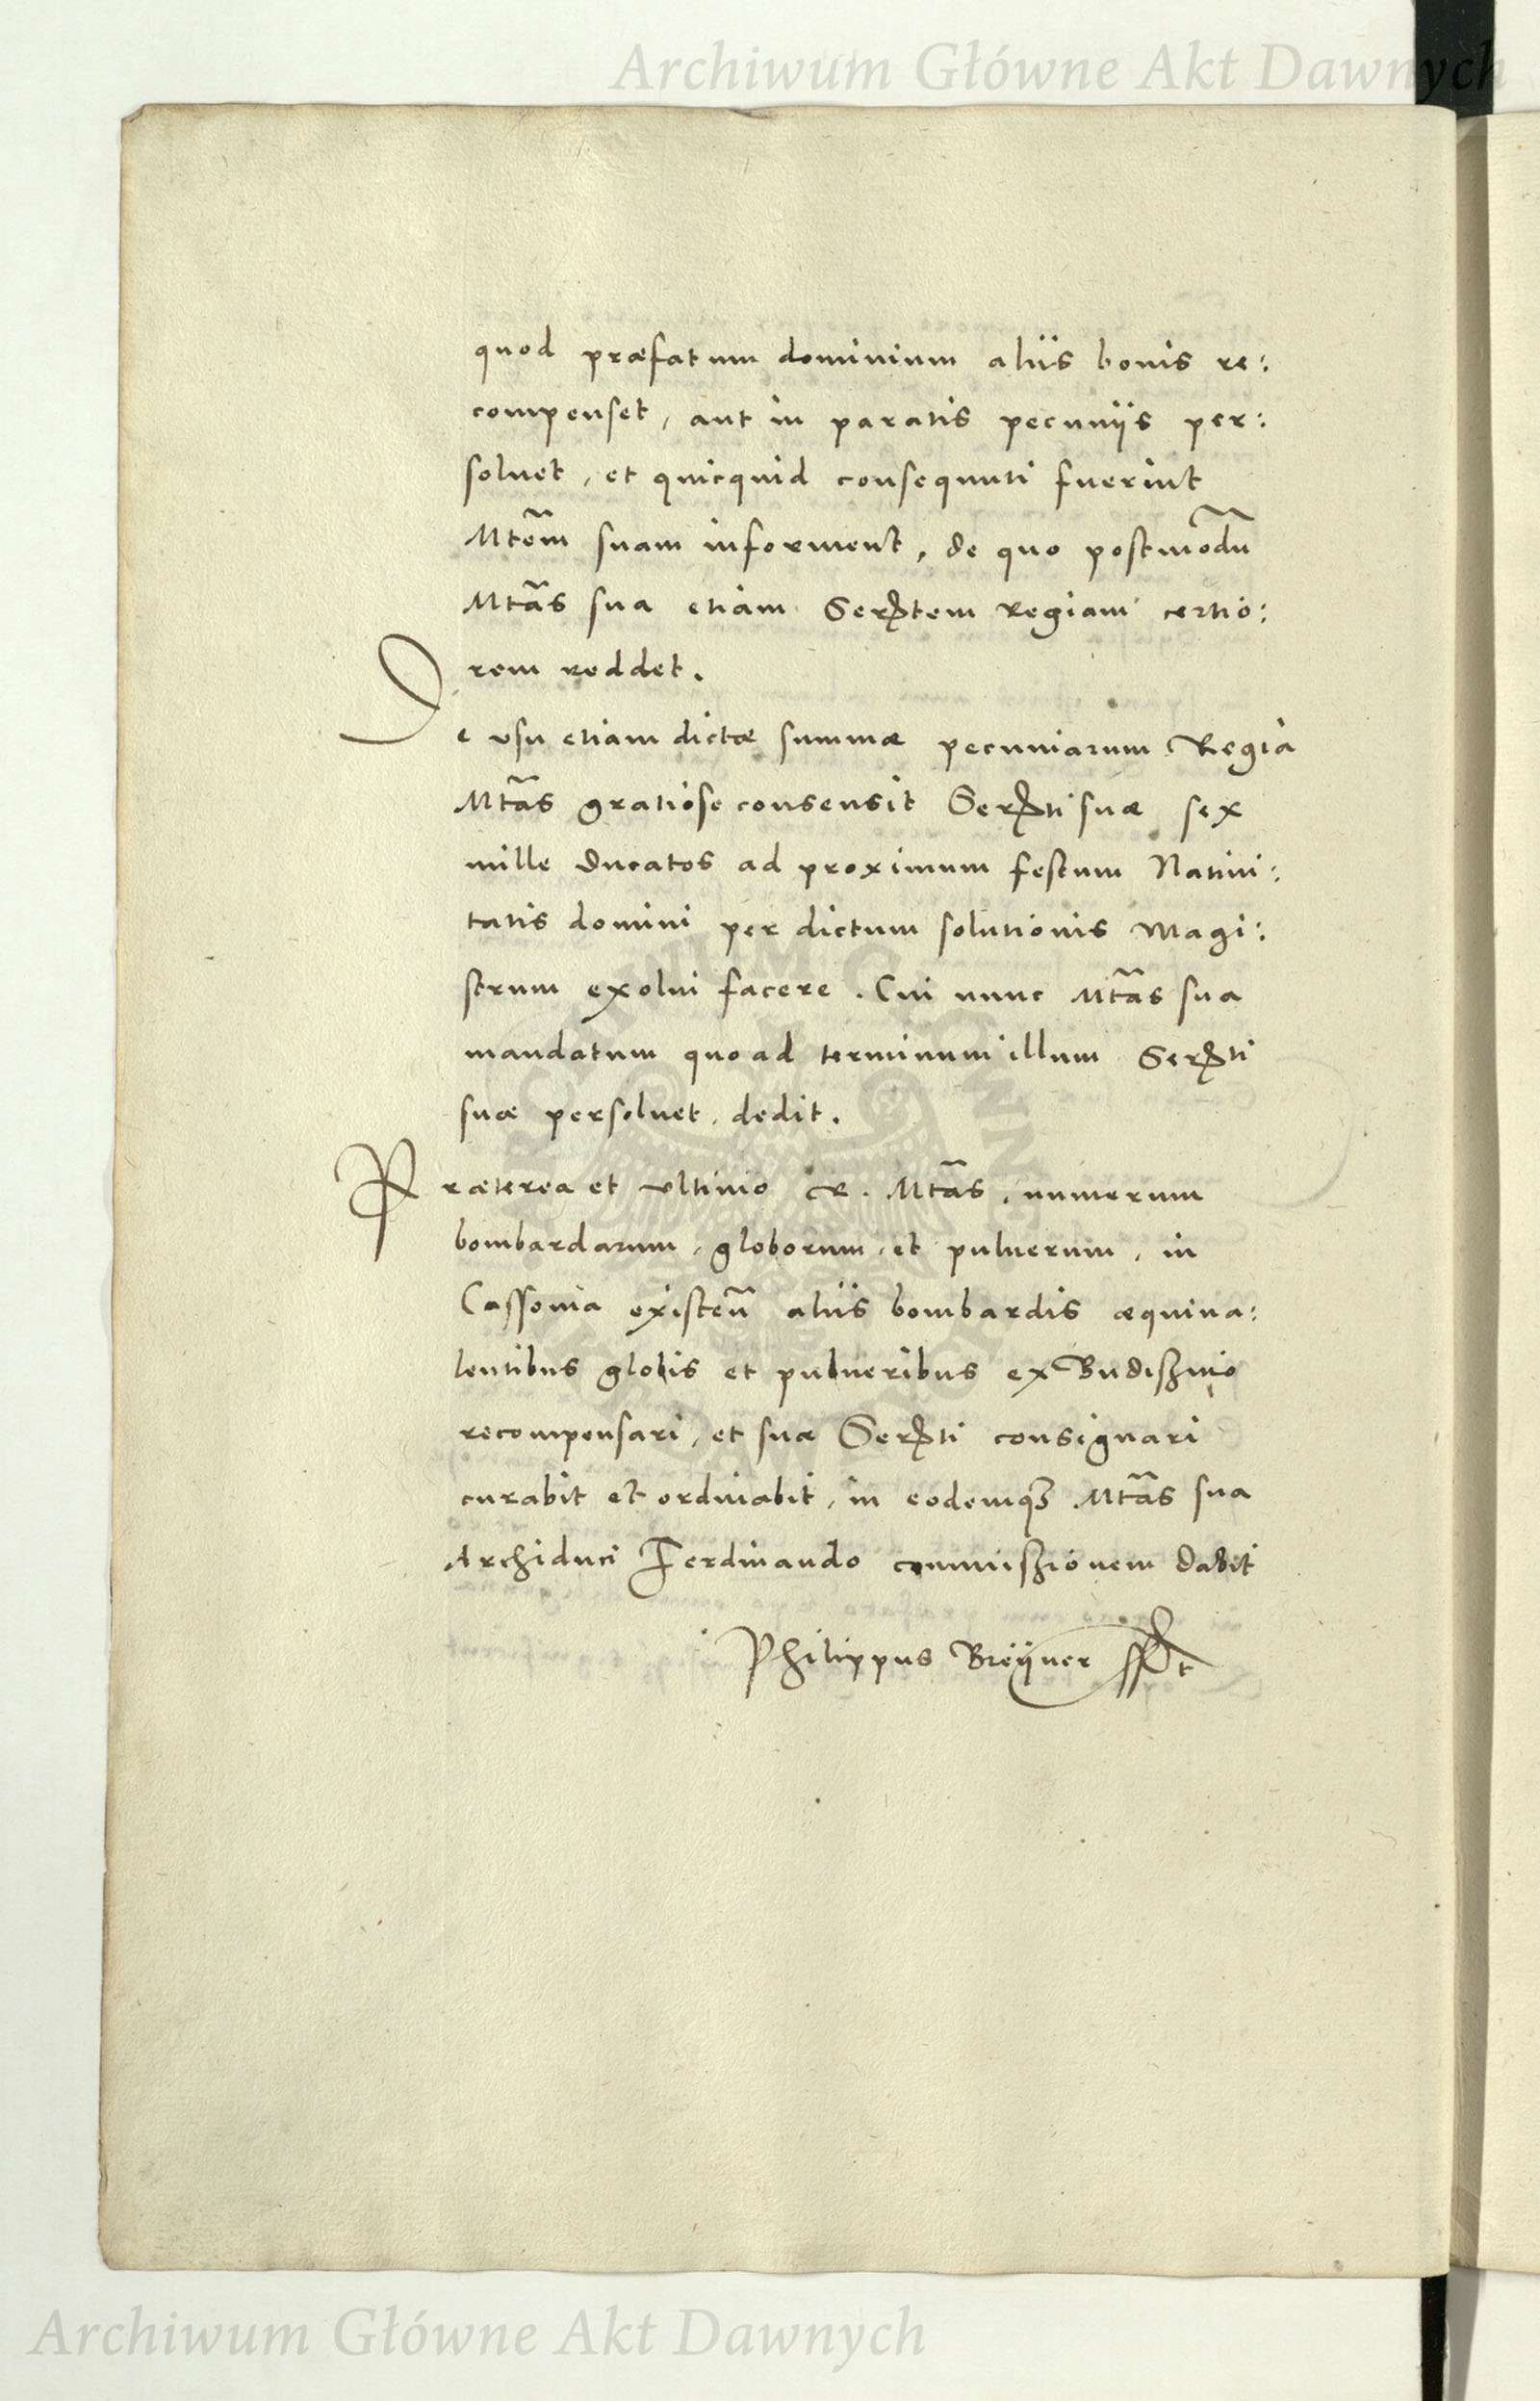 Archiwum Główne Akt Dawnych
quod præfatum dominium aliis bonis re:
compenset, aut in paratis pecunijs per:
soluet, et quicquid consequuti fuerint
Mtem̃ suam informent, de quo postmodũ
Mtãs sua etiam Sertem Regiam certio:
rem reddet.
De vsu etiam dictæ summæ pecuniarum Regia
Mtãs gratiose consensit Serti suæ sex
mille ducatos ad proximum festum Natiui:
tatis domini per dictum solutionis Magi:
strum exolui facere. Cui nunc Mtãs sua
mandatum quo ad terminum illum Serti
suæ persoluet, dedit.
Præterea et vltimo R. Mtãs, numerum
bombardarum, globorum, et puluerum, in
Cassouia existeñ aliis bombardis æquiua:
lentibus globis et pulueribus ex Budissinio
recompensari, et suæ Serti consignari
curabit et ordinabit, in eodemq3 Mtãs sua
Archiduci Ferdinando commissionem dabit
Philippus Breÿner sst
Archiwum Główne Akt Dawnych